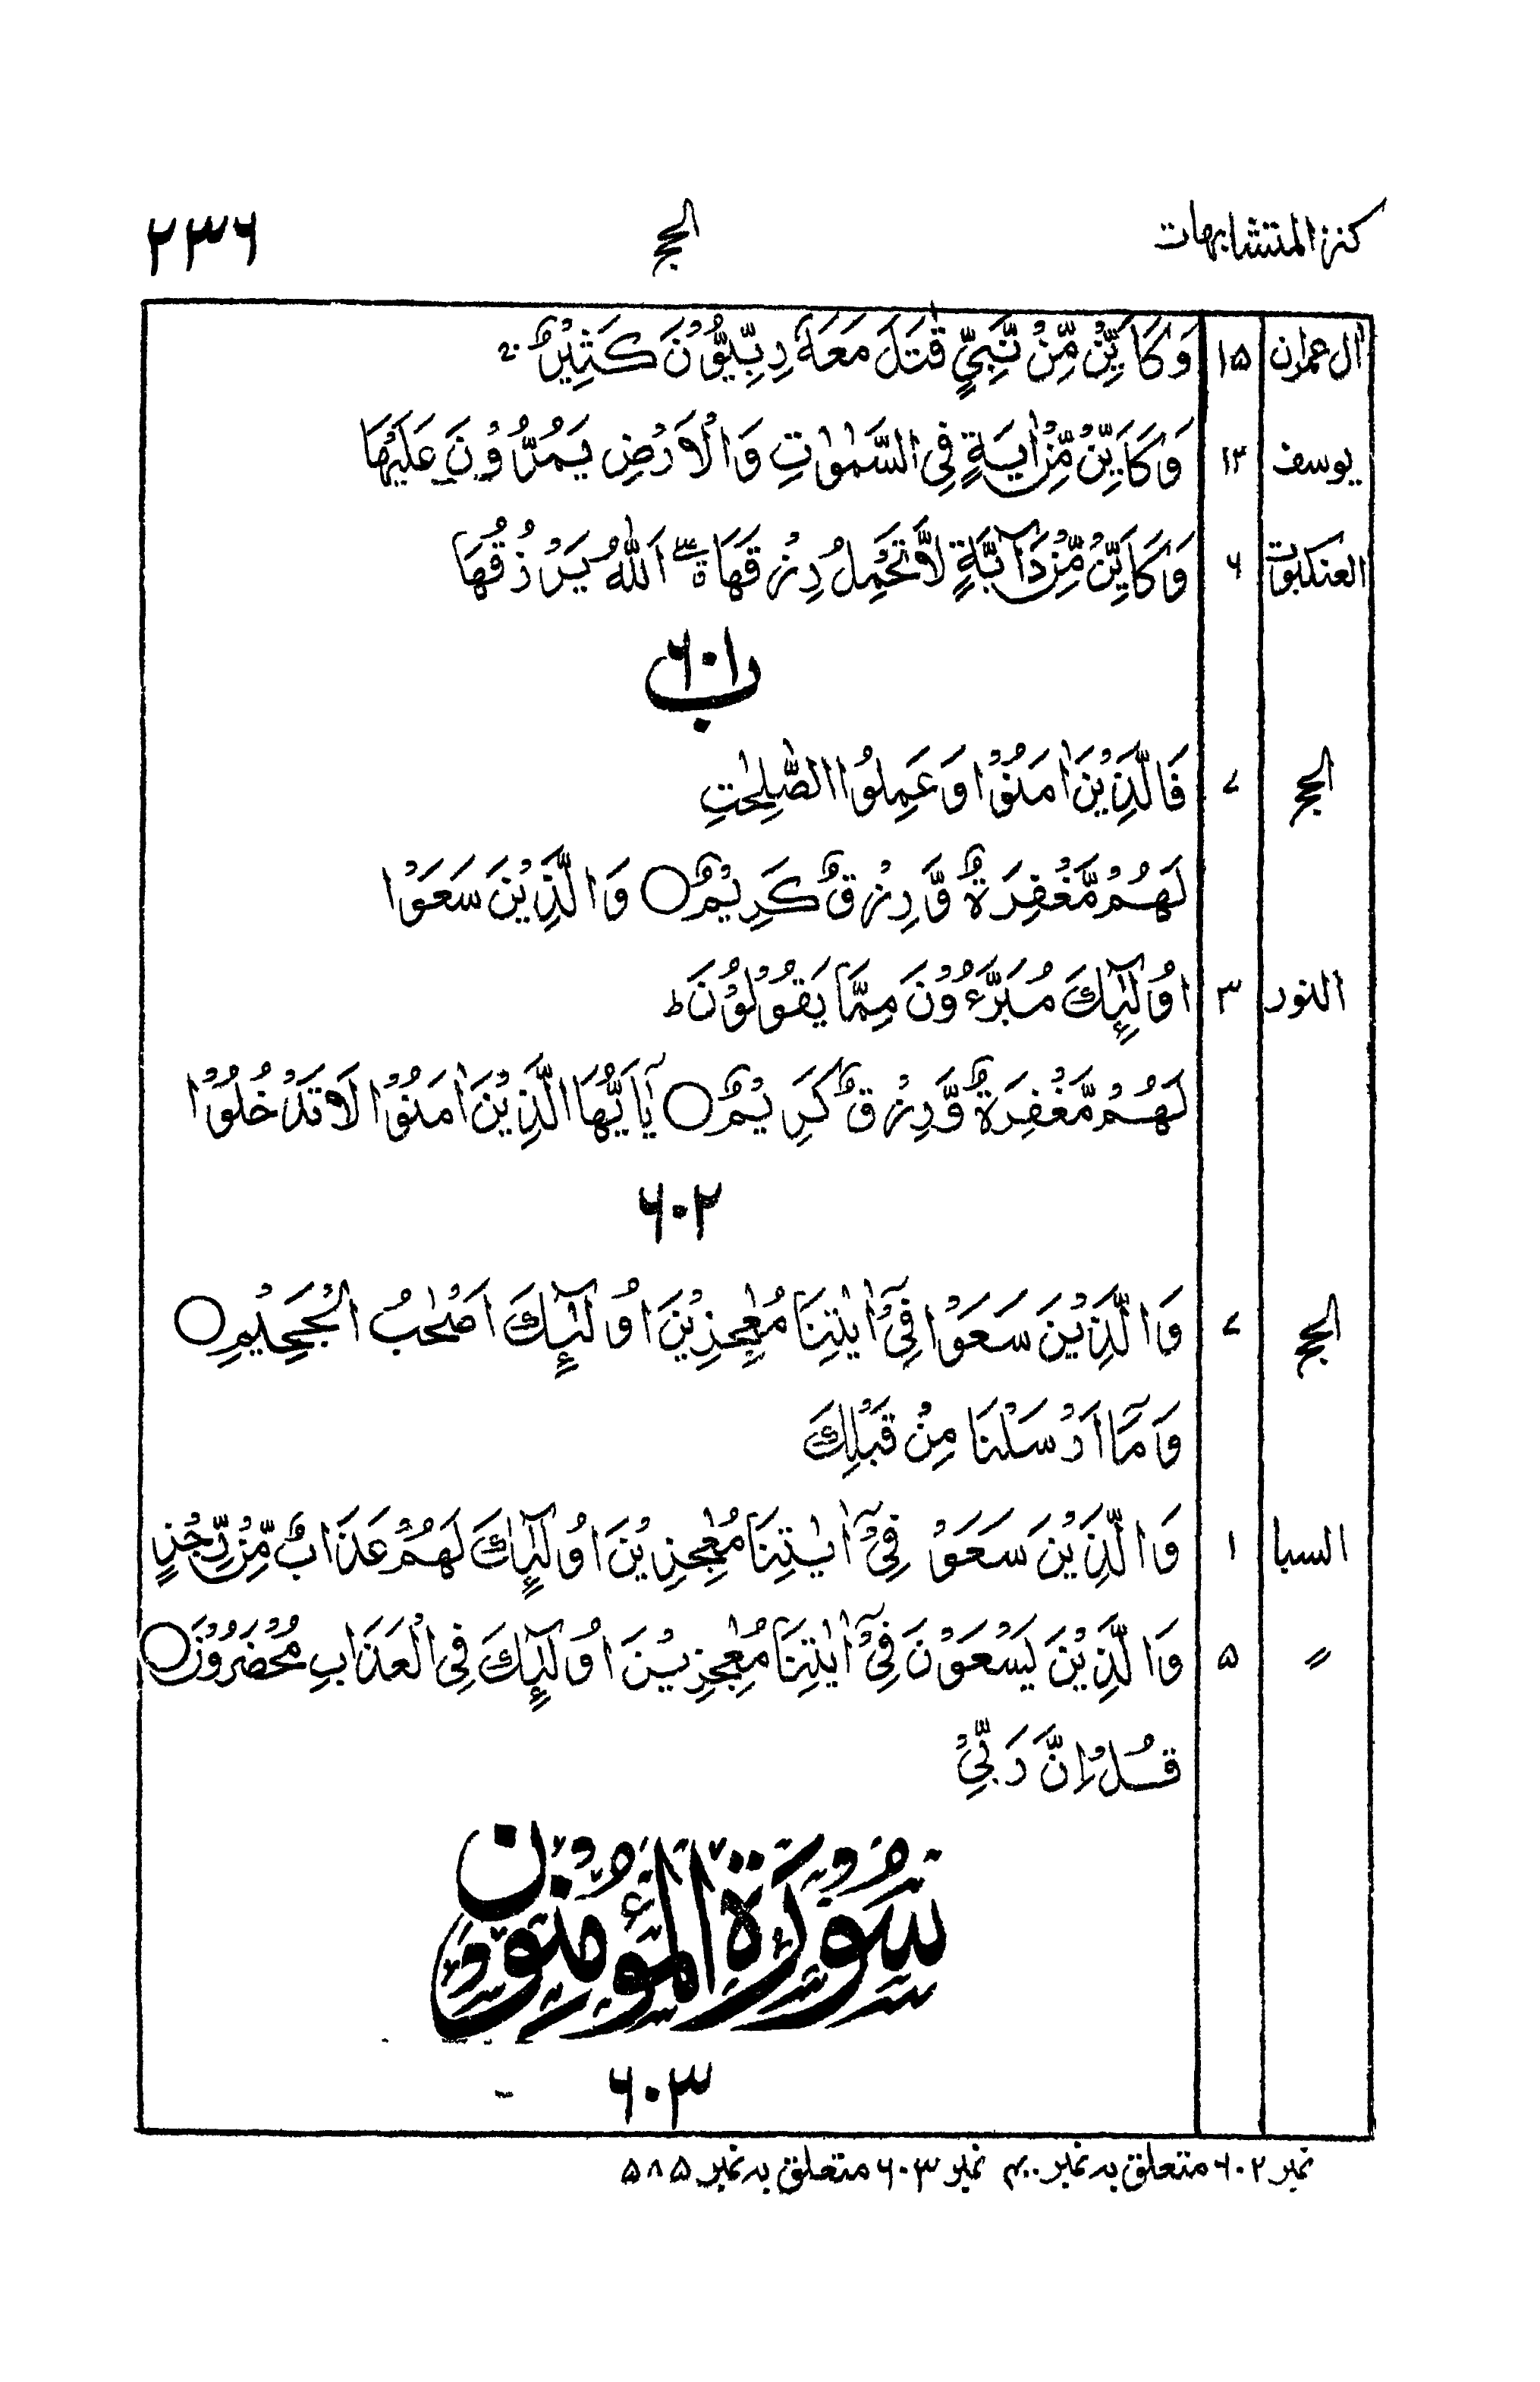 كنز المتشابهات الحج ٢٣٦
اٰل عمران ١٥ وَكَاَيِّنْ مِّنْ نَّبِيٍّ قٰتَلَ مَعَهٗ رِبِّيُّوْنَ كَثِيْرٌ ۚ
يوسف ١٢ وَكَاَيِّنْ مِّنْ اٰيَةٍ فِى السَّمٰوٰتِ وَالْاَرْضِ يَمُرُّوْنَ عَلَيْهَا
العنكبوت ٦ وَكَاَيِّنْ مِّنْ دَآبَّةٍ لَّا تَحْمِلُ رِزْقَهَا ۖ اَللّٰهُ يَرْزُقُهَا
٦٠١ ب
الحج ٧ فَالَّذِيْنَ اٰمَنُوْا وَعَمِلُوا الصّٰلِحٰتِ
لَهُمْ مَّغْفِرَةٌ وَّرِزْقٌ كَرِيْمٌ ○ وَالَّذِيْنَ سَعَوْا
النور ٣ اُولٰٓئِكَ مُبَرَّءُوْنَ مِمَّا يَقُوْلُوْنَ ط
لَهُمْ مَّغْفِرَةٌ وَّرِزْقٌ كَرِيْمٌ ○ يٰٓاَيُّهَا الَّذِيْنَ اٰمَنُوْا لَا تَدْخُلُوْا
٦٠٢
الحج ٧ وَالَّذِيْنَ سَعَوْا فِيْٓ اٰيٰتِنَا مُعٰجِزِيْنَ اُولٰٓئِكَ اَصْحٰبُ الْجَحِيْمِ ○
وَمَآ اَرْسَلْنَا مِنْ قَبْلِكَ
السبا ١ وَالَّذِيْنَ سَعَوْ فِيْٓ اٰيٰتِنَا مُعٰجِزِيْنَ اُولٰٓئِكَ لَهُمْ عَذَابٌ مِّنْ رِّجْزٍ
〃 ٥ وَالَّذِيْنَ يَسْعَوْنَ فِيْٓ اٰيٰتِنَا مُعٰجِزِيْنَ اُولٰٓئِكَ فِى الْعَذَابِ مُحْضَرُوْنَ ○
قُلْ اِنَّ رَبِّيْ
سُوْرَةُ الْمُؤْمِنُوْنَ
٦٠٣
نمبر ٦٠٢ متعلق بہ نمبر ٤٠٠ نمبر ٦٠٣ متعلق بہ نمبر ٥٨٥